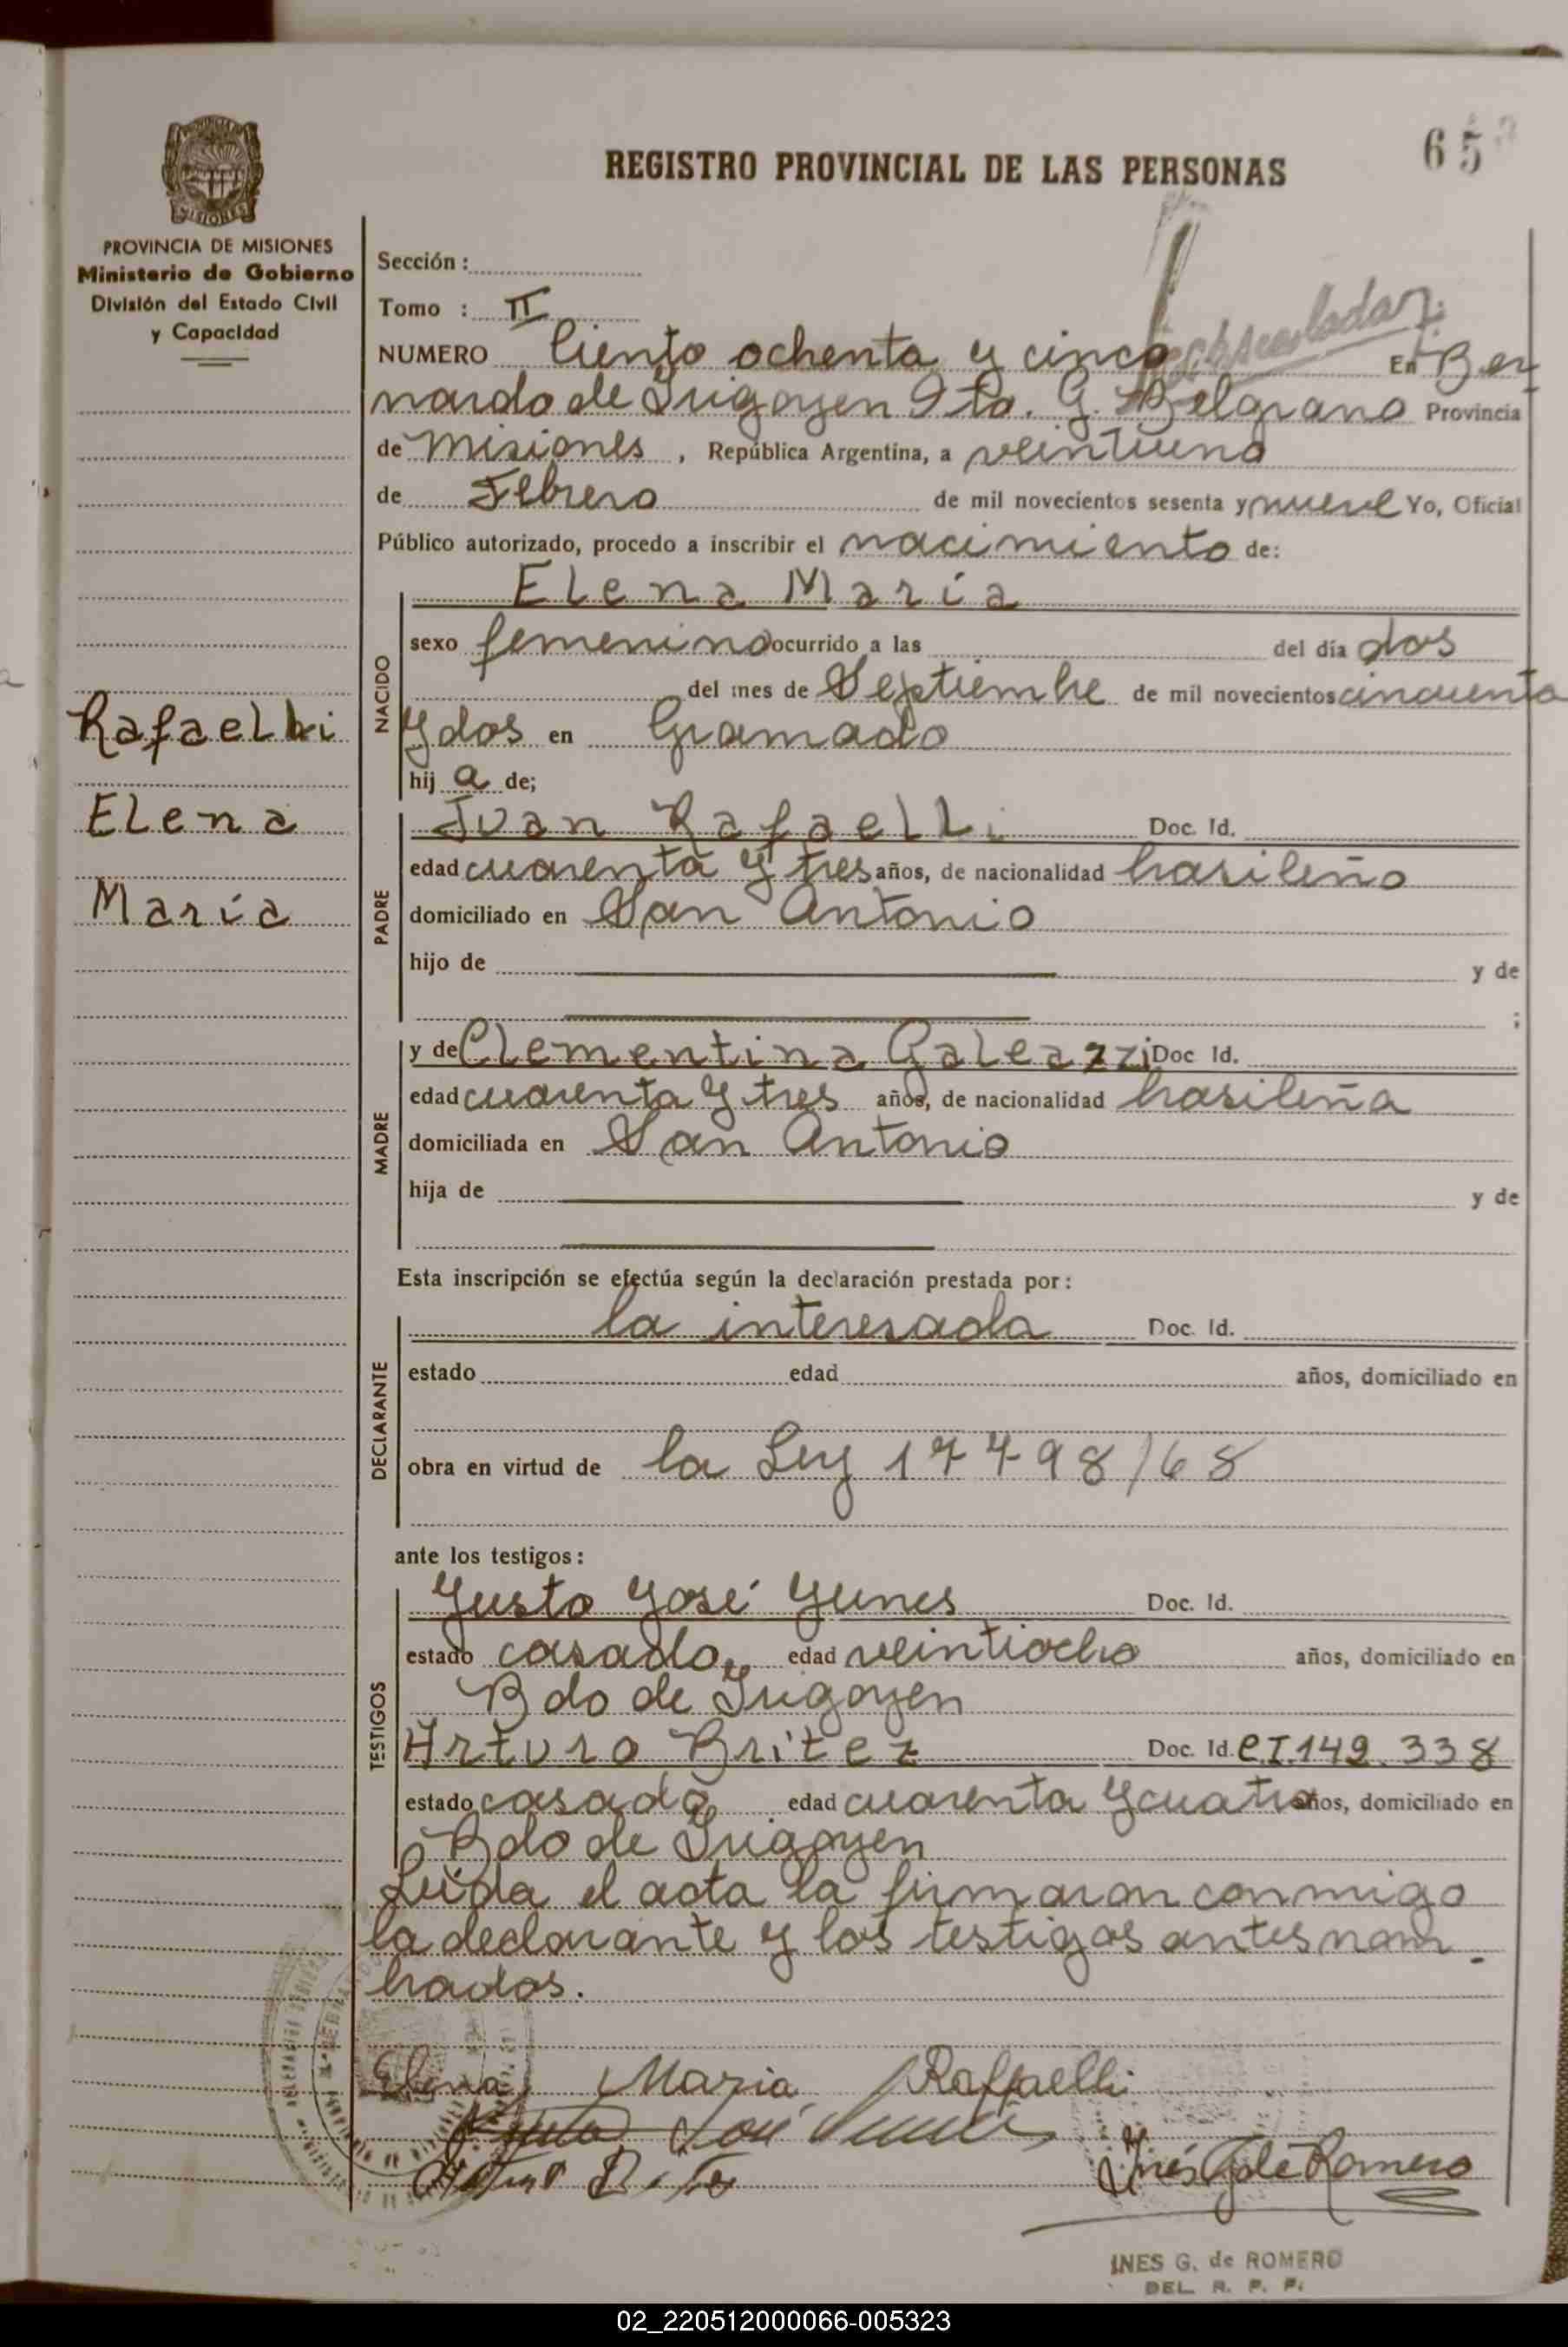 65
REGISTRO PROVINCIAL DE LAS PERSONAS
PROVINCIA DE MISIONES
Ministerio de Gobierno
División del Estado Civil
y Capacidad
Sección :
Tomo : II
NUMERO Ciento ochenta y cinco En Ber
nardo de Irigoyen Dto. G. Belgrano Provincia
de Misiones , República Argentina, a veintiuno
de Febrero de mil novecientos sesenta y nueve Yo, Oficial
Público autorizado, procedo a inscribir el nacimiento de:
NACIDO
Elena María
sexo femenino ocurrido a las del día dos
del mes de Septiembre de mil novecientos cincuenta
y dos en Gramado
hij a de;
Rafaelli
Elena
María
PADRE
Juan Rafaelli Doc. Id.
edad cuarenta y tres años, de nacionalidad brasileño
domiciliado en San Antonio
hijo de y de
;
MADRE
y de Clementina Galeazzi Doc Id.
edad cuarenta y tres años, de nacionalidad brasileña
domiciliada en San Antonio
hija de y de
Esta inscripción se efectúa según la declaración prestada por :
DECLARANTE
la interesada Doc. Id.
estado edad años, domiciliado en
obra en virtud de la Ley 17798/68
ante los testigos :
TESTIGOS
Justo José Yunes Doc. Id.
estado casado edad veintiocho años, domiciliado en
Bdo de Irigoyen
Arturo Britez Doc. Id. C.I. 149.338
estado casado edad cuarenta y cuatro años, domiciliado en
Bdo de Irigoyen
Leída el acta la firmaron conmigo
la declarante y los testigos antes nom
brados.
Elena Maria Raffaelli
Justo José Yunes
Inés G de Romero
INES G. de ROMERO
DEL. R. P. P.
02_220512000066-005323